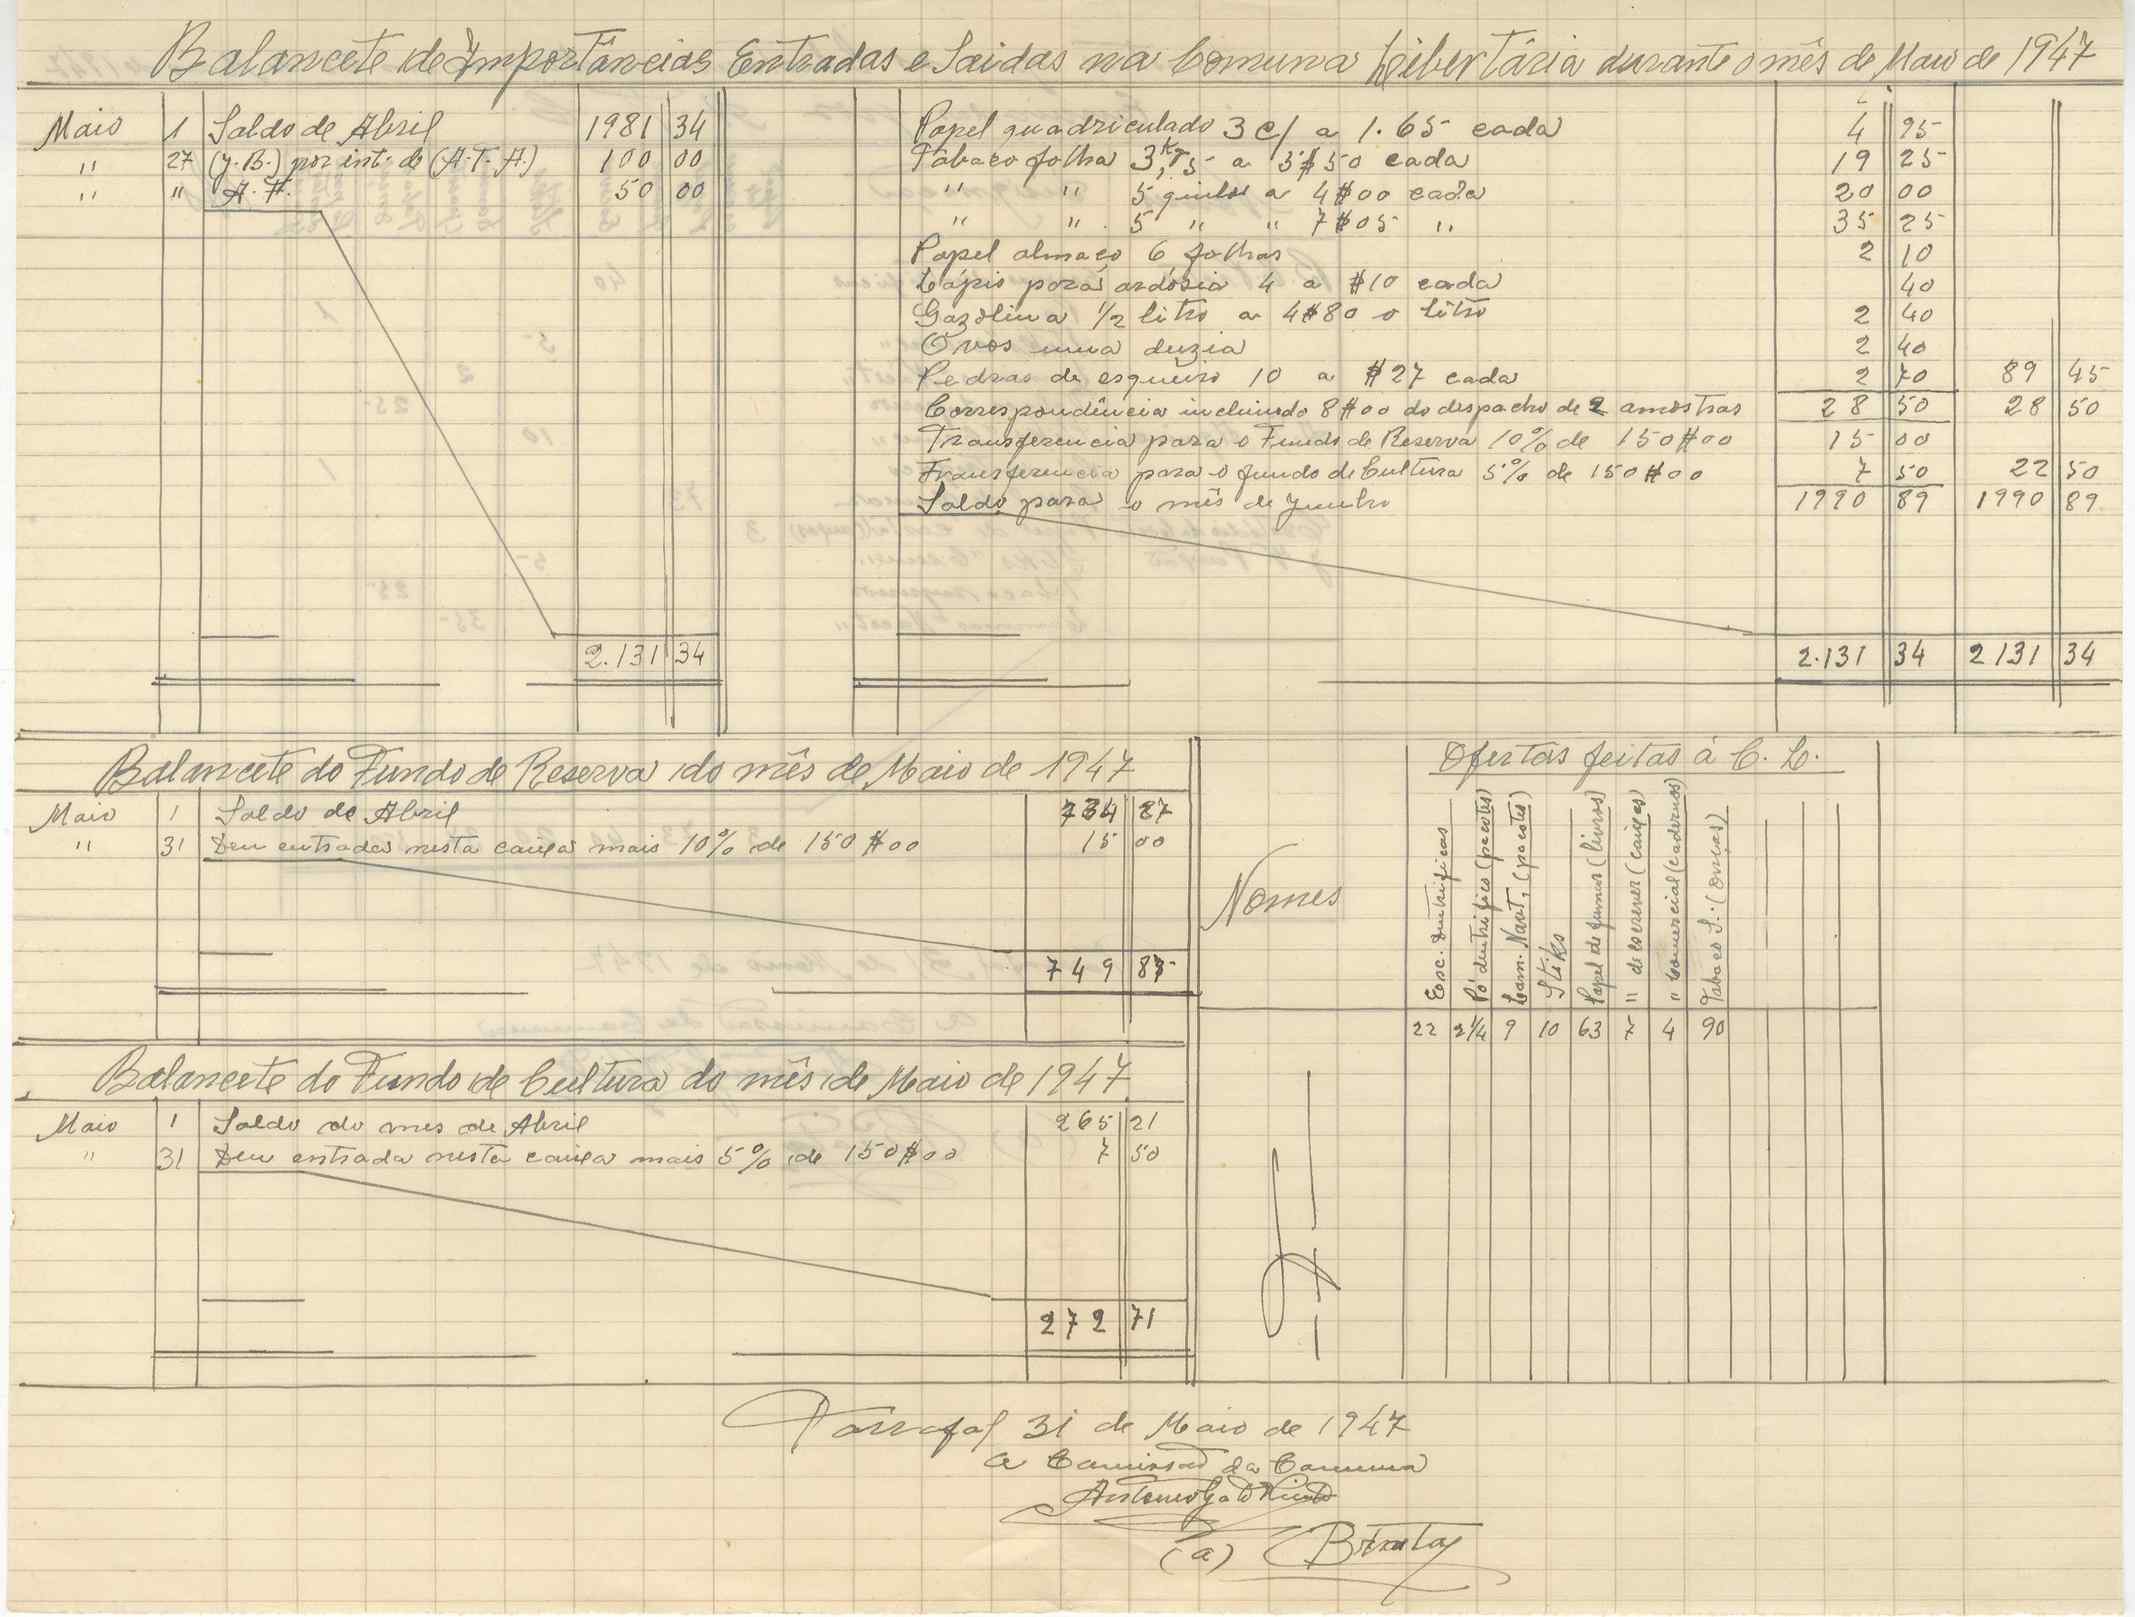 Balancete de Importâncias Entradas e Saidas na Comuna Libertária durante o mês de Maio de 1947
Maio 1 Saldo de Abril 1981 34
" 27 (J. B.) por int. de (A. T. A.) 100 00
" " A. F. 50 00
2.131 34
Papel quadriculado 3 c/ a 1.65 cada 4 95
Tabaco folha 3,KT5 a 3$50 cada 19 25
" " 5 quilos a 4$00 cada 20 00
" " 5 " " 7$05 " 35 25
Papel almaço 6 folhas 2 10
Lápis pará ardósia 4 a $10 cada 40
Gazolina 1/2 litro a 4$80 o litro 2 40
Ovos uma duzia 2 40
Pedras de esqueiro 10 a $27 cada 2 70 89 45
Correspondência incluindo 8$00 do despacho de 2 amostras 28 50 28 50
Transferencia para o Fundo de Reserva 10% de 150$00 15 00
Transferencia para o fundo de Cultura 5% de 150$00 7 50 22 50
Saldo para o mês de Junho 1990 89 1990 89
2.131 34 2131 34
Balancete do Fundo de Reserva do mês de Maio de 1947
Maio 1 Saldo de Abril 734 87
" 31 Deu entrada nesta caixa mais 10% de 150$00 15 00
749 87
Balancete do Fundo de Cultura do mês de Maio de 1947
Maio 1 Saldo do mes de Abril 265 21
" 31 Deu entrada nesta caixa mais 5% de 150$00 7 50
272 71
Ofertas feitas á C. L.
Nomes
Esc. Dentrificas
Pó dentrifico (pacotes)
Cam. Navt. (pacotes)
Papel de fumar (livros)
" de escrever (caixas)
" Comercial (cadernos)
Tabaco S. (onças)
22 2 1/4 9 10 63 7 4 90
Tarrafal 31 de Maio de 1947
A Comissão da Comuna
Antonio Gato Pinto
(a)